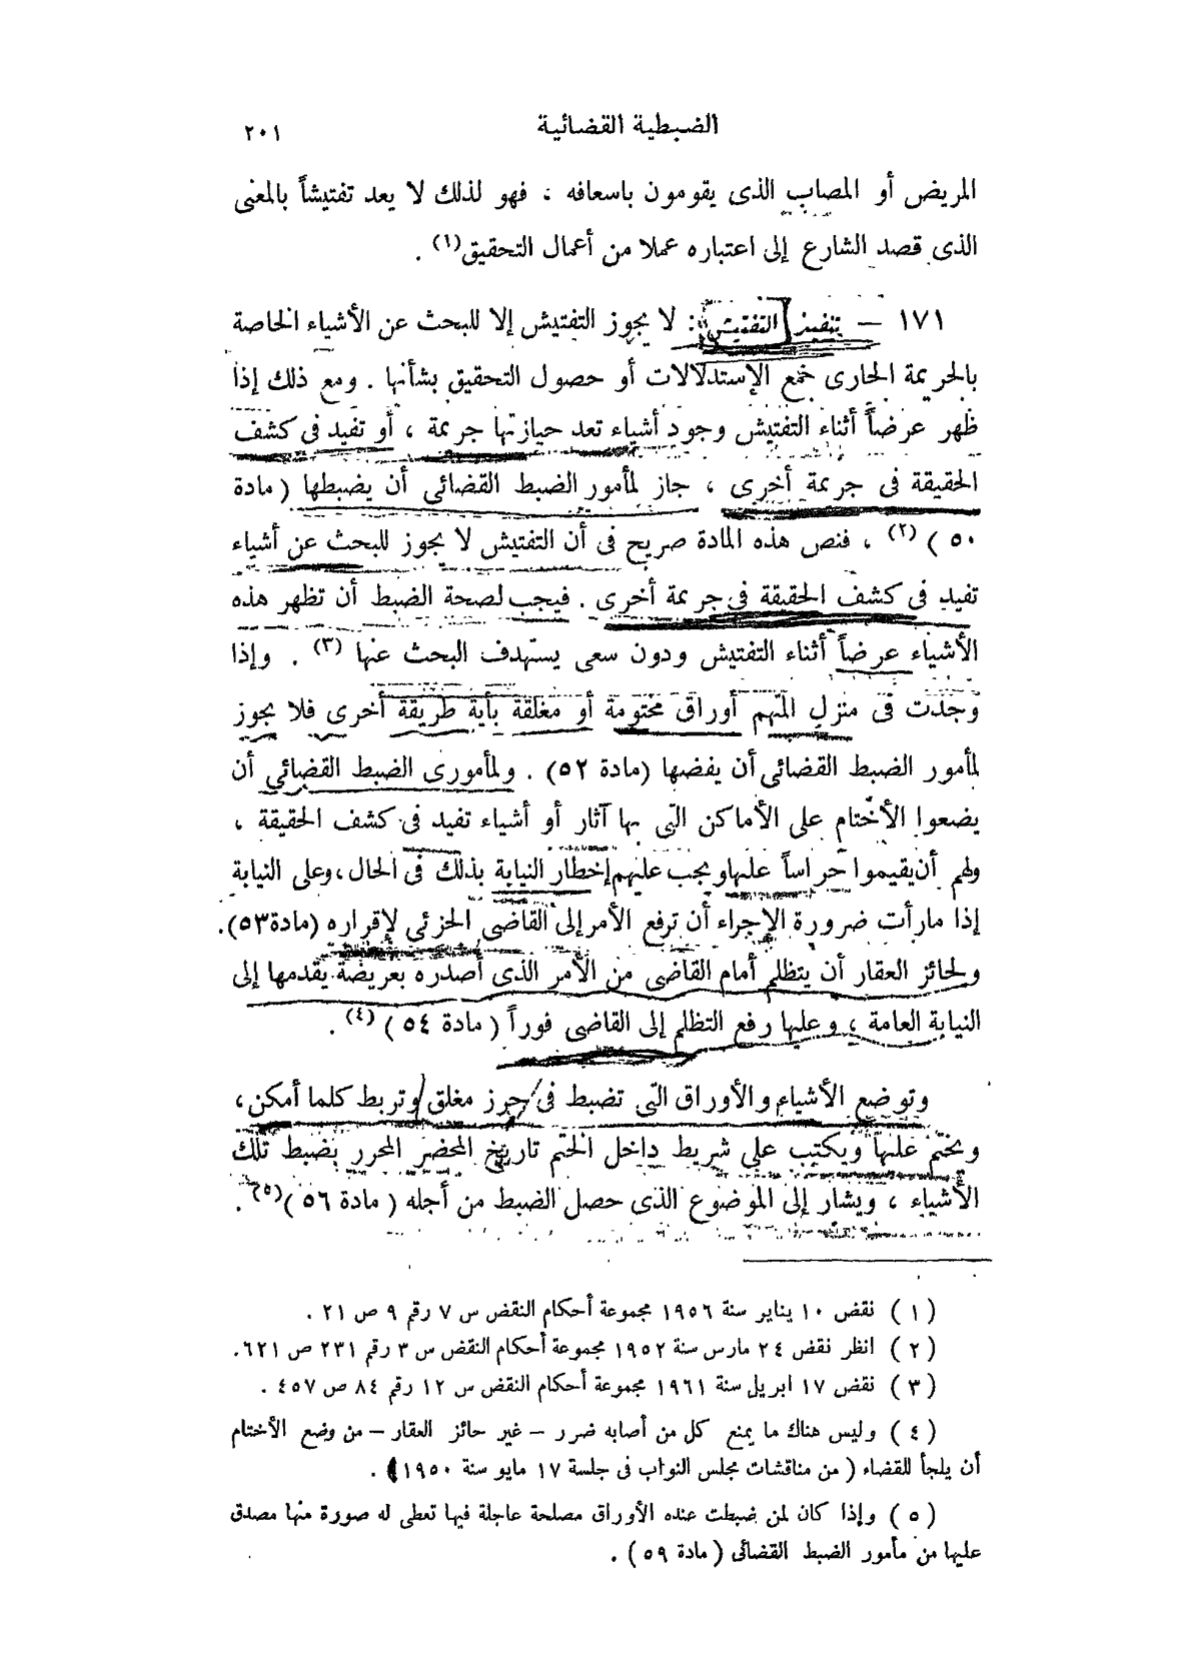 الضبطية القضائية
٢٠١
المريض أو المصاب الذى يقومون باسعافه ، فهو لذلك لا يعد تفتيشاً بالمعنى
الذى قصد الشارع إلى اعتباره عملا من أعمال التحقيق(١) .
١٧١ — تنفيذ التفتيش : لا يجوز التفتيش إلا للبحث عن الأشياء الخاصة
بالجريمة الجارى جمع الإستدلالات أو حصول التحقيق بشأنها . ومع ذلك إذا
ظهر عرضاً أثناء التفتيش وجود أشياء تعد حيازتها جريمة ، أو تفيد فى كشف
الحقيقة فى جريمة أخرى ، جاز لمأمور الضبط القضائى أن يضبطها ( مادة
٥٠ ) (٢) ، فنص هذه المادة صريح فى أن التفتيش لا يجوز للبحث عن أشياء
تفيد فى كشف الحقيقة فى جريمة أخرى . فيجب لصحة الضبط أن تظهر هذه
الأشياء عرضاً أثناء التفتيش ودون سعى يستهدف البحث عنها (٣) . وإذا
وجدت فى منزل المتهم أوراق مختومة أو مغلقة بأية طريقة أخرى فلا يجوز
لمأمور الضبط القضائى أن يفضها (مادة ٥٢) . ولمأمورى الضبط القضائى أن
يضعوا الأختام على الأماكن التى بها آثار أو أشياء تفيد فى كشف الحقيقة ،
ولهم أن يقيموا حراساً عليها ويجب عليهم إخطار النيابة بذلك فى الحال ، وعلى النيابة
إذا مارأت ضرورة الإجراء أن ترفع الأمر إلى القاضى الجزئى لإقراره (مادة٥٣).
ولحائز العقار أن يتظلم أمام القاضى من الأمر الذى أصدره بعريضة يقدمها إلى
النيابة العامة ، وعليها رفع التظلم إلى القاضى فوراً ( مادة ٥٤ ) (٤) .
وتوضع الأشياء والأوراق التى تضبط فى حرز مغلق وتربط كلما أمكن ،
ويختم عليها ويكتب على شريط داخل الختم تاريخ المحضر المحرر بضبط تلك
الأشياء ، ويشار إلى الموضوع الذى حصل الضبط من أجله ( مادة ٥٦ )(٥) .
( ١ ) نقض ١٠ يناير سنة ١٩٥٦ مجموعة أحكام النقض س ٧ رقم ٩ ص ٢١ .
( ٢ ) انظر نقض ٢٤ مارس سنة ١٩٥٢ مجموعة أحكام النقض س ٣ رقم ٢٣١ ص ٦٢١.
( ٣ ) نقض ١٧ ابريل سنة ١٩٦١ مجموعة أحكام النقض س ١٢ رقم ٨٤ ص ٤٥٧ .
( ٤ ) وليس هناك ما يمنع كل من أصابه ضرر – غير حائز العقار – من وضع الأختام
أن يلجأ للقضاء ( من مناقشات مجلس النواب فى جلسة ١٧ مايو سنة ١٩٥٠ ) .
( ٥ ) وإذا كان لمن ضبطت عنده الأوراق مصلحة عاجلة فيها تعطى له صورة منها مصدق
عليها من مأمور الضبط القضائى ( مادة ٥٩ ) .